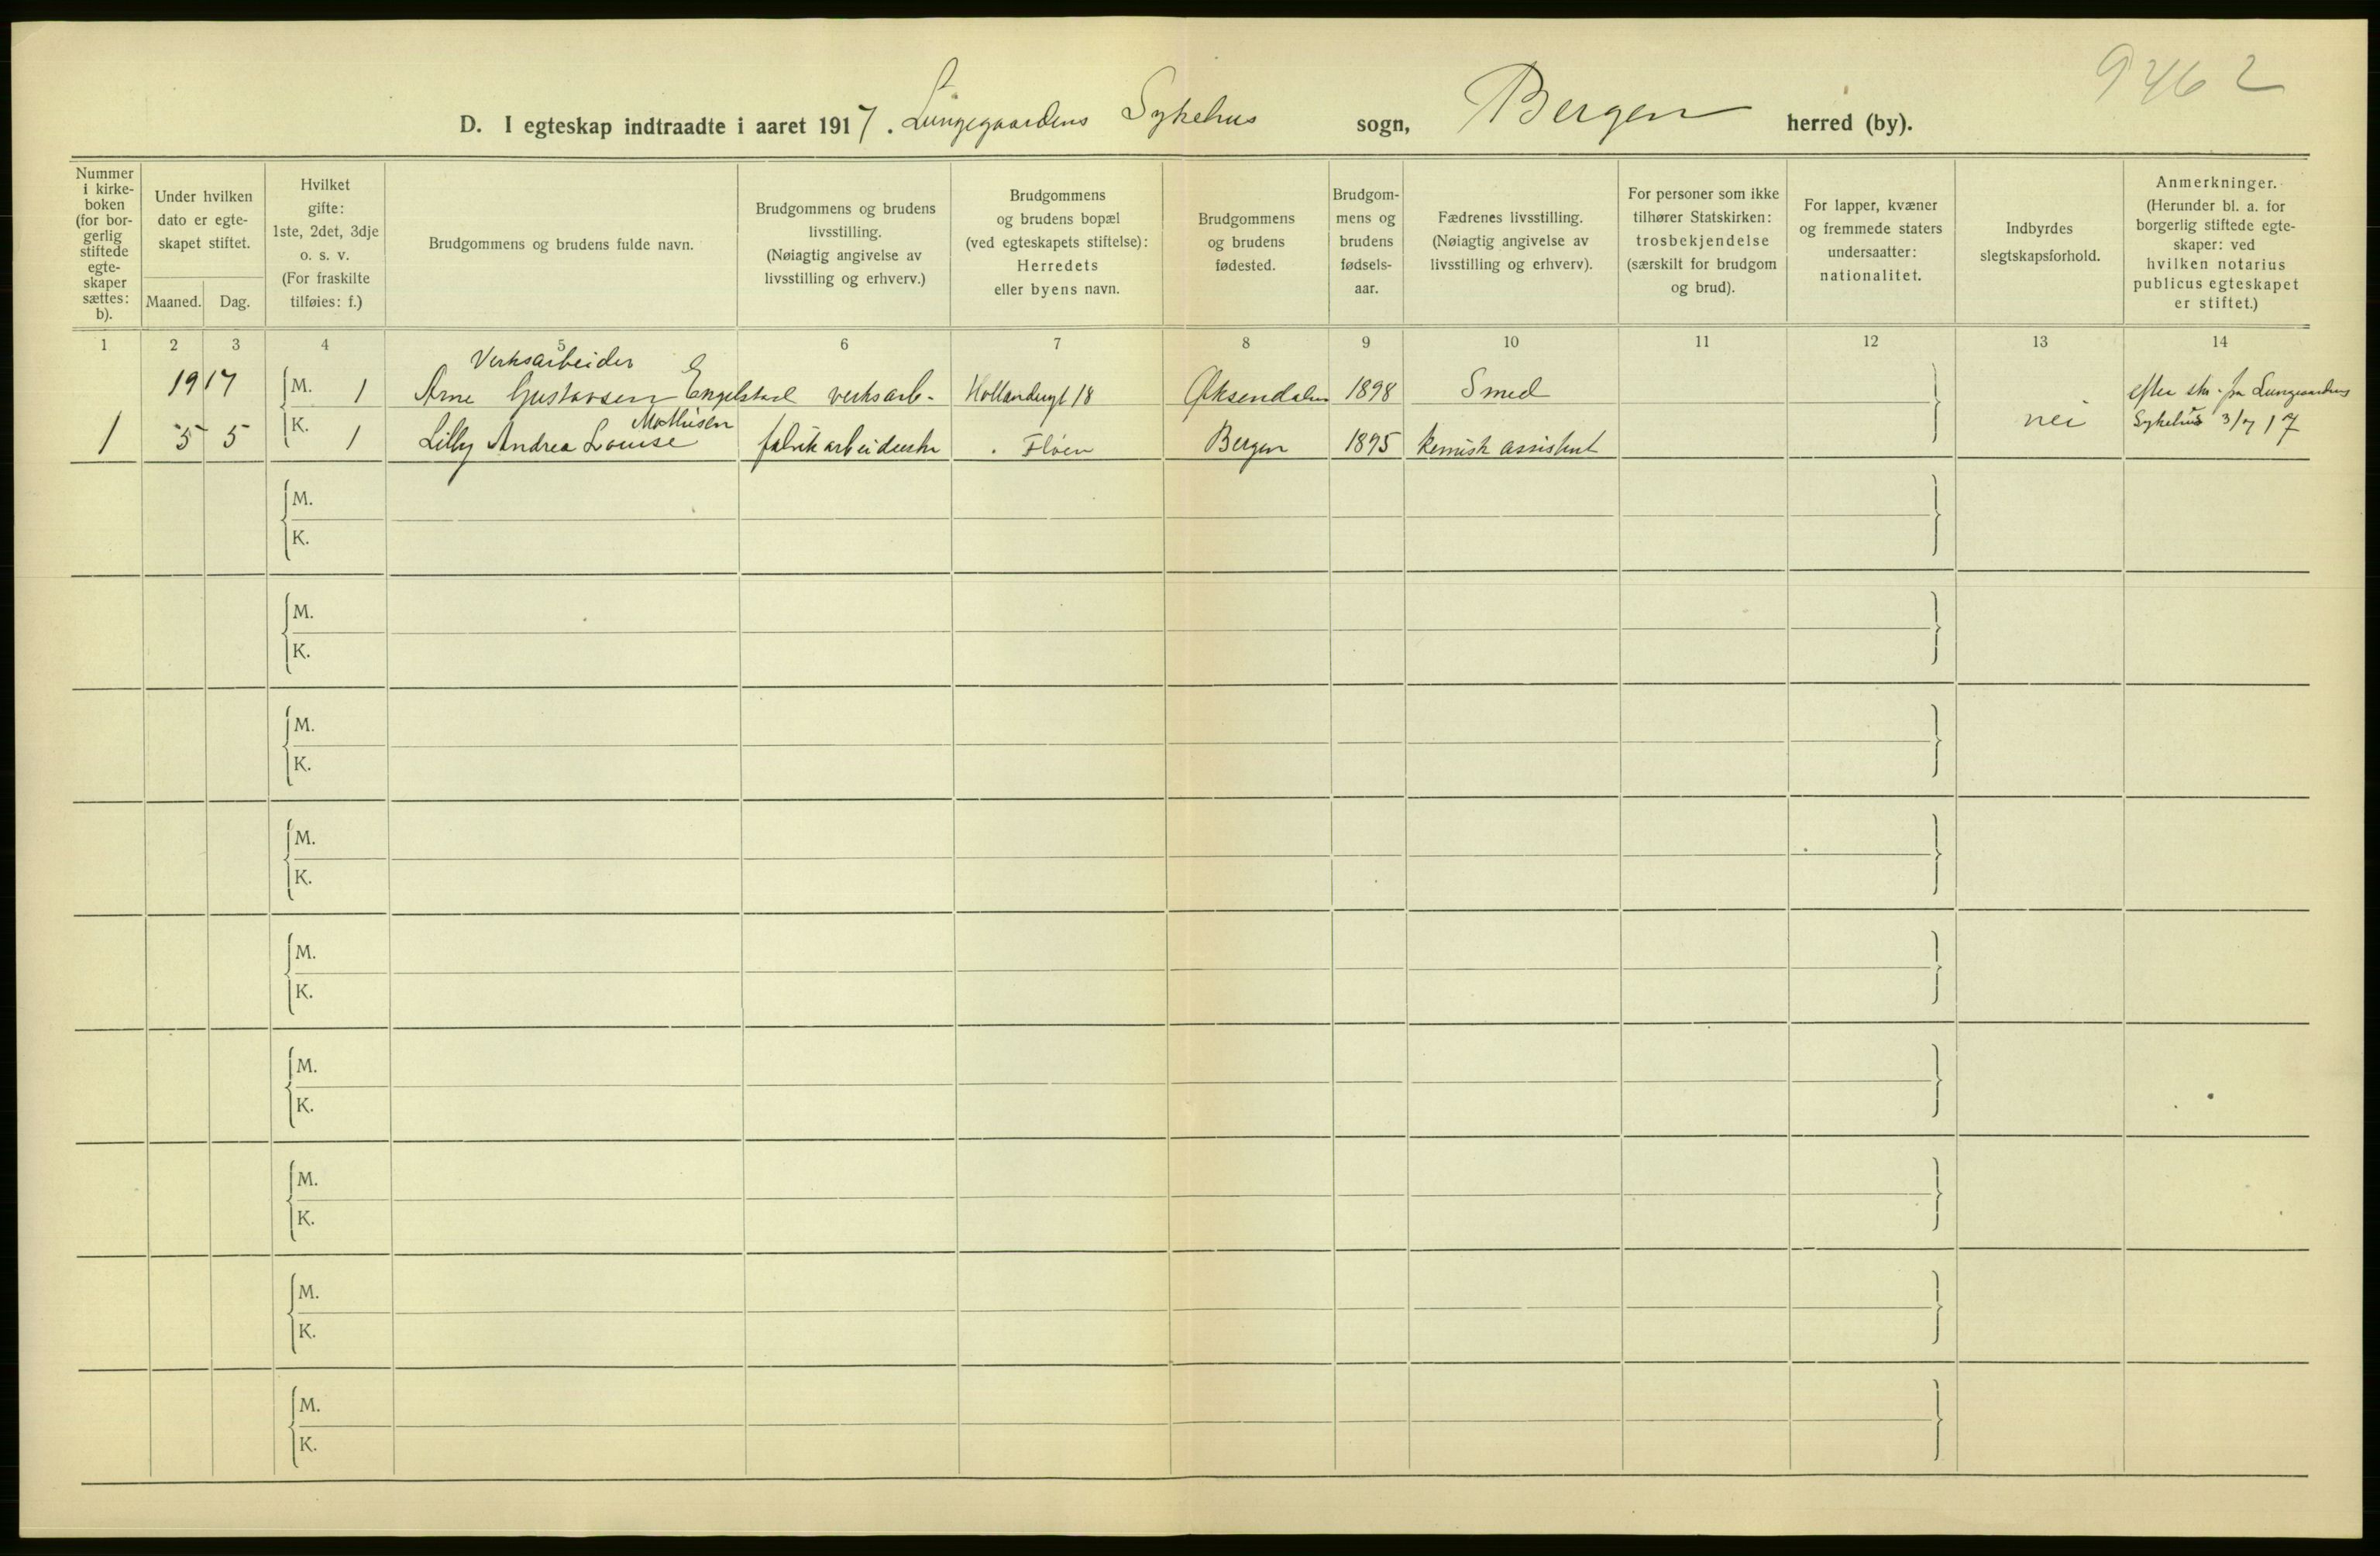 9462
D. I egteskap indtraadte i aaret 1917. Lungegaardens Sykehus sogn, Bergen herred (by).
Nummer i kirkeboken (for borgerlig stiftede egteskaper sættes: b).
Under hvilken dato er egteskapet stiftet.
Maaned. Dag.
Hvilket gifte: 1ste, 2det, 3dje o. s. v. (For fraskilte tilføies: f.)
Brudgommens og brudens fulde navn.
Brudgommens og brudens livsstilling. (Nøiagtig angivelse av livsstilling og erhverv.)
Brudgommens og brudens bopæl (ved egteskapets stiftelse): Herredets eller byens navn.
Brudgommens og brudens fødested.
Brudgommens og brudens fødselsaar.
Fædrenes livsstilling. (Nøiagtig angivelse av livsstilling og erhverv).
For personer som ikke tilhører Statskirken: trosbekjendelse (særskilt for brudgom og brud).
For lapper, kvæner og fremmede staters undersaatter: nationalitet.
Indbyrdes slegtskapsforhold.
Anmerkninger. (Herunder bl. a. for borgerlig stiftede egteskaper: ved hvilken notarius publicus egteskapet er stiftet.)
1 2 3 4 5 6 7 8 9 10 11 12 13 14
Verksarbeider
1917 M. 1 Arne Gustavsen Engelstad verksarb. Hollendergt 18 Øksendalen 1898 Smed efter skr. fra Lungegaardens
Mathisen
1 5 5 K. 1 Lilly Andrea Louise fabrikarbeiderske Fløen Bergen 1895 kemisk assistent nei Sykehus 3/7 17
M.
K.
M.
K.
M.
K.
M.
K.
M.
K.
M.
K.
M.
K.
M.
K.
M.
K.